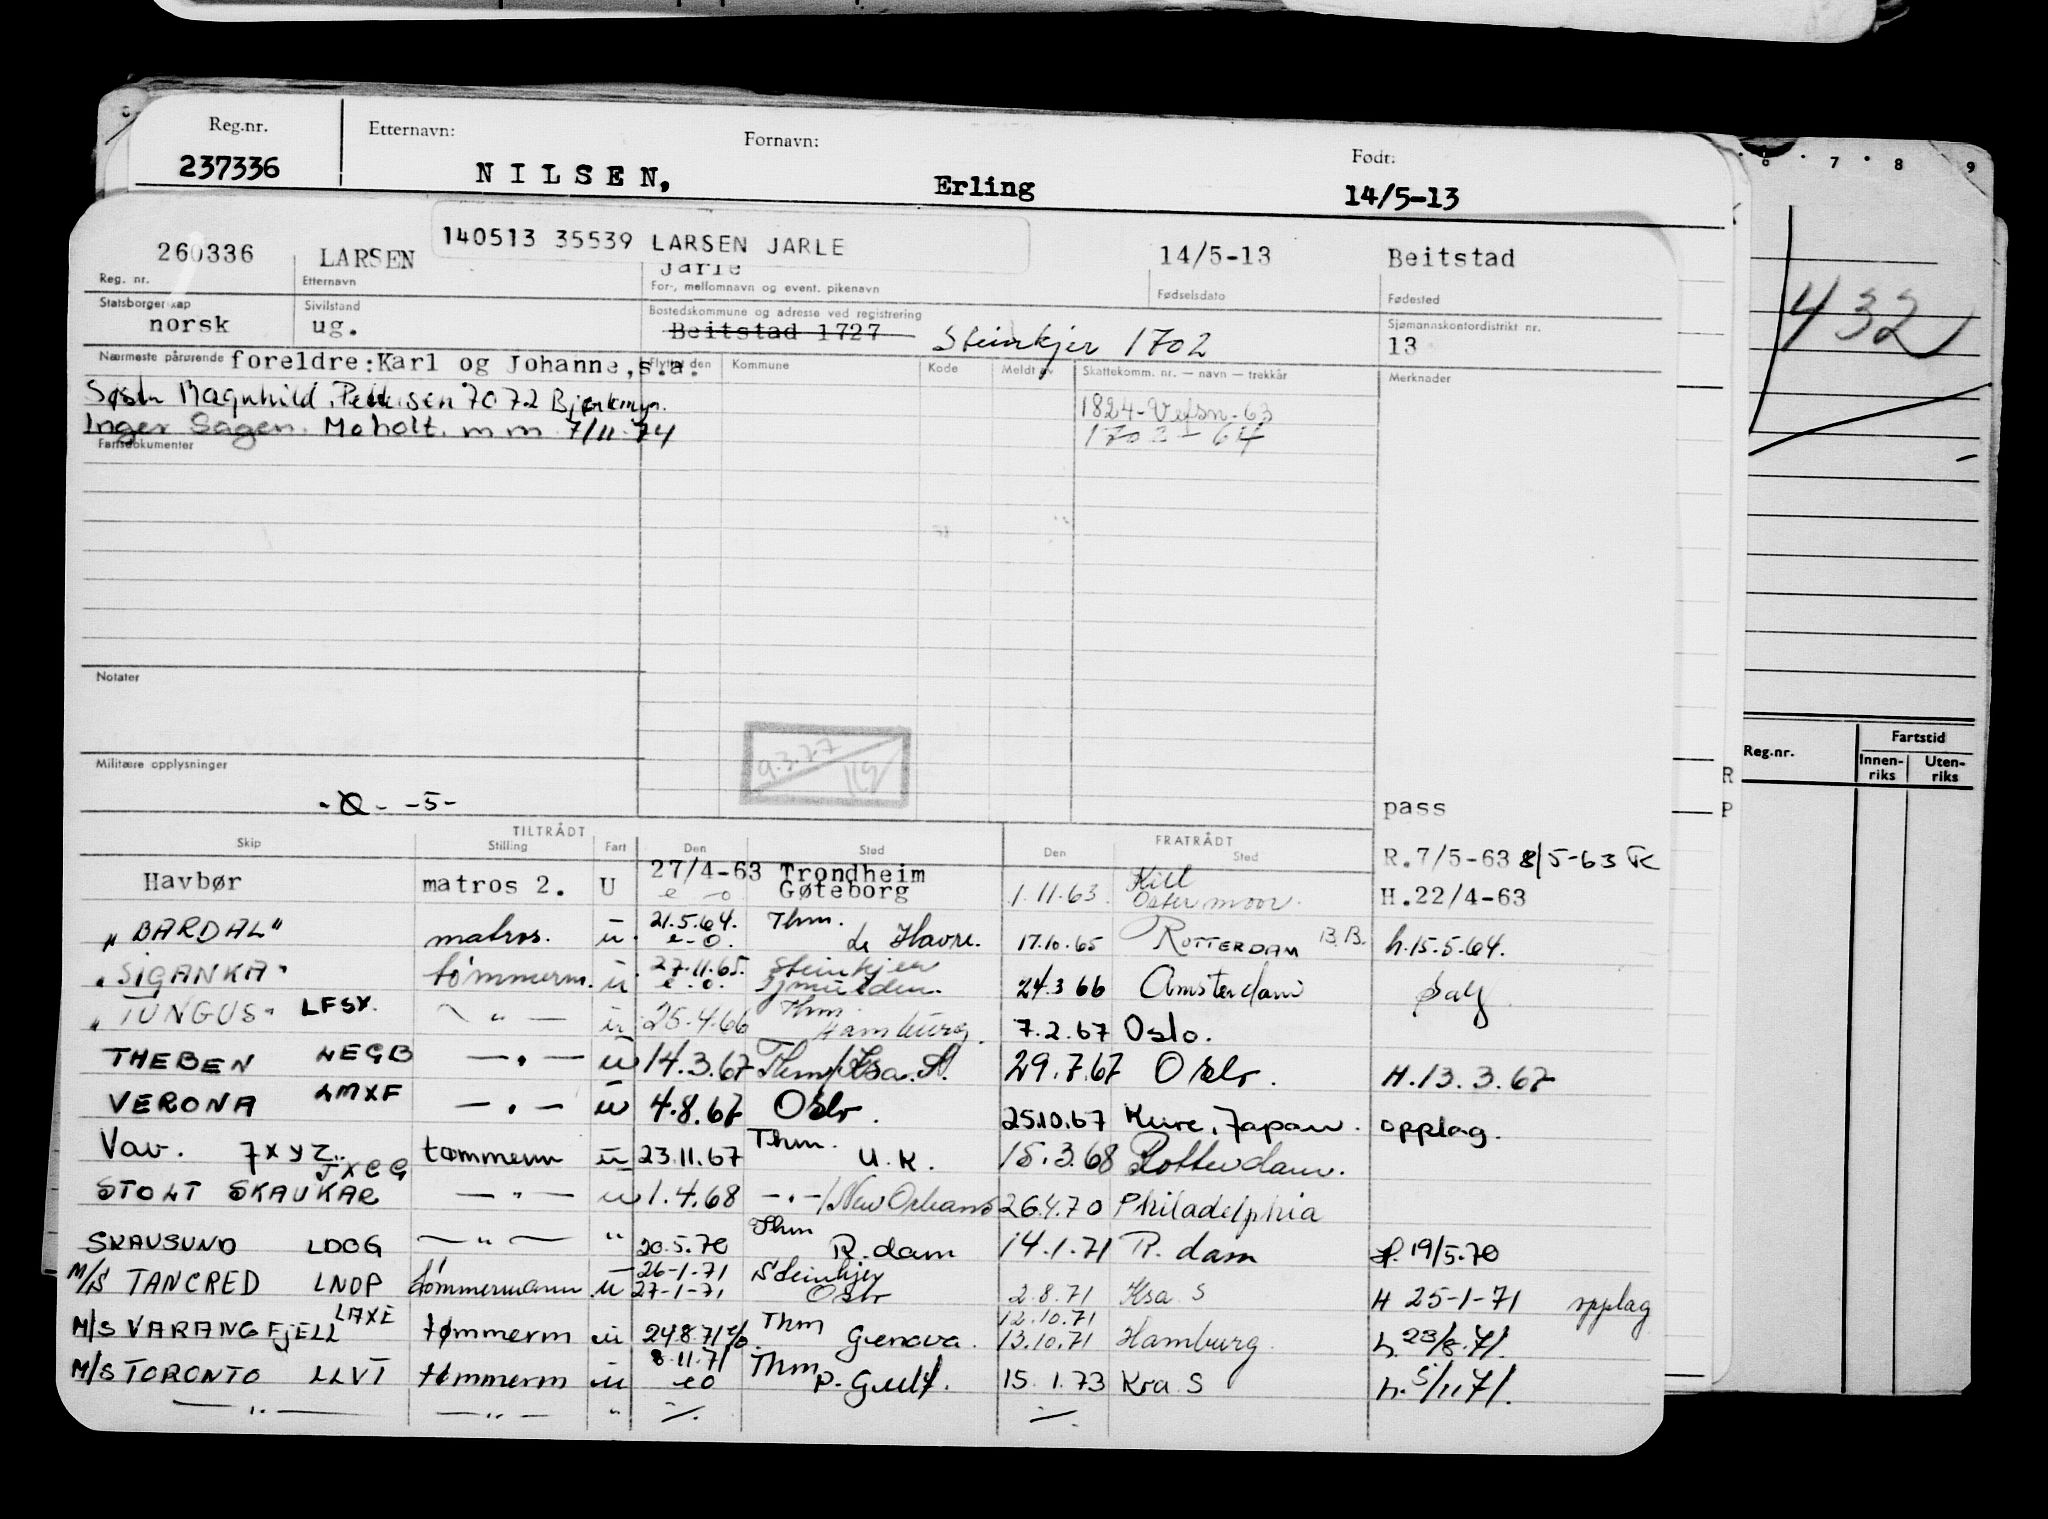 Reg.nr. Etternavn: Fornavn: Født:
237336 NILSEN, Erling 14/5-13
6 · 7 · 8 9
432
140513 35539 LARSEN JARLE
260336 LARSEN Jarle 14/5-13 Beitstad
Reg. nr. Etternavn For-, mellomnavn og event. pikenavn Fødselsdato Fødested
Statsborgerskap Sivilstand Bostedskommune og adresse ved registrering Sjømannskontordistrikt nr.
norsk ug. Beitstad 1727 Steinkjer 1702 13
Nærmeste pårørende foreldre: Karl og Johanne, s.a. Flyttet den Kommune Kode Meldt av Skattekomm. nr. — navn — trekkår Merknader
Magnhild Pettersen 7072 1824-Vefsn-63
Inger Sagen. Moholt. m m 7/11-74 1702 - 64
Fartsdokumenter
Notater
9.3.77
Militære opplysninger
-5-
pass
TILTRÅDT FRATRÅDT
Skip Stilling Fart Den Sted Den Sted
R.7/5-63 8/5-63
Havbør matros 2. U 27/4-63 Trondheim
e - o Gøteborg 1.11.63. Kiel Ostermoor. H.22/4-63
"BARDAL" matros. u 21.5.64. e-o. Thm. le Havre. 17.10.65 ROTTERDAM B.B. h.15.5.64.
"SIGANKA" tømmerm. u 27.11.65. e.o. Steinkjer Ijmuiden. 24.3 66 Amsterdam
"TUNGUS" LFSX. — " — u 25.4.66 Thm. Hamburg. 7.2.67 Oslo.
THEBEN LEGB — " — u 14.3.67 Thm/Ksa. S. 29.7.67 Oslo. H.13.3.67
VERONA LMXF — " — u 4.8.67 Oslo. 25.10.67 Kure, Japan. opplag.
Vav. 7xyz tømmerm u 23.11.67 Thm. U.K. 15.3.68 Rotterdam.
STOLT SKAUKAR JXCG — " — u 1.4.68 — " — /New Orleans 26.4.70 Philadelphia
SKAUSUND LDOG — " — " 20.5.70 Thm R.dam 14.1.71 R.dam H. 19/5.70
M/S TANCRED LNDP tømmermann u 26-1-71 27-1-71 Steinkjer Oslo 2.8.71 Ksa S H 25-1-71 opplag
M/S VARANGFJELL LAXE tømmerm u 24.8.71 e/o Thm Genova. 12.10.71 13.10.71 Hamburg. h. 23/8.71.
M/S TORONTO LLVT tømmerm u 8.11.71 eo Thm P. Gulf. 15.1.73 Kra S h. 5/11.71.
— " — — " — " ./. ./.
Reg.nr. Fartstid
Innenriks Utenriks
R
P